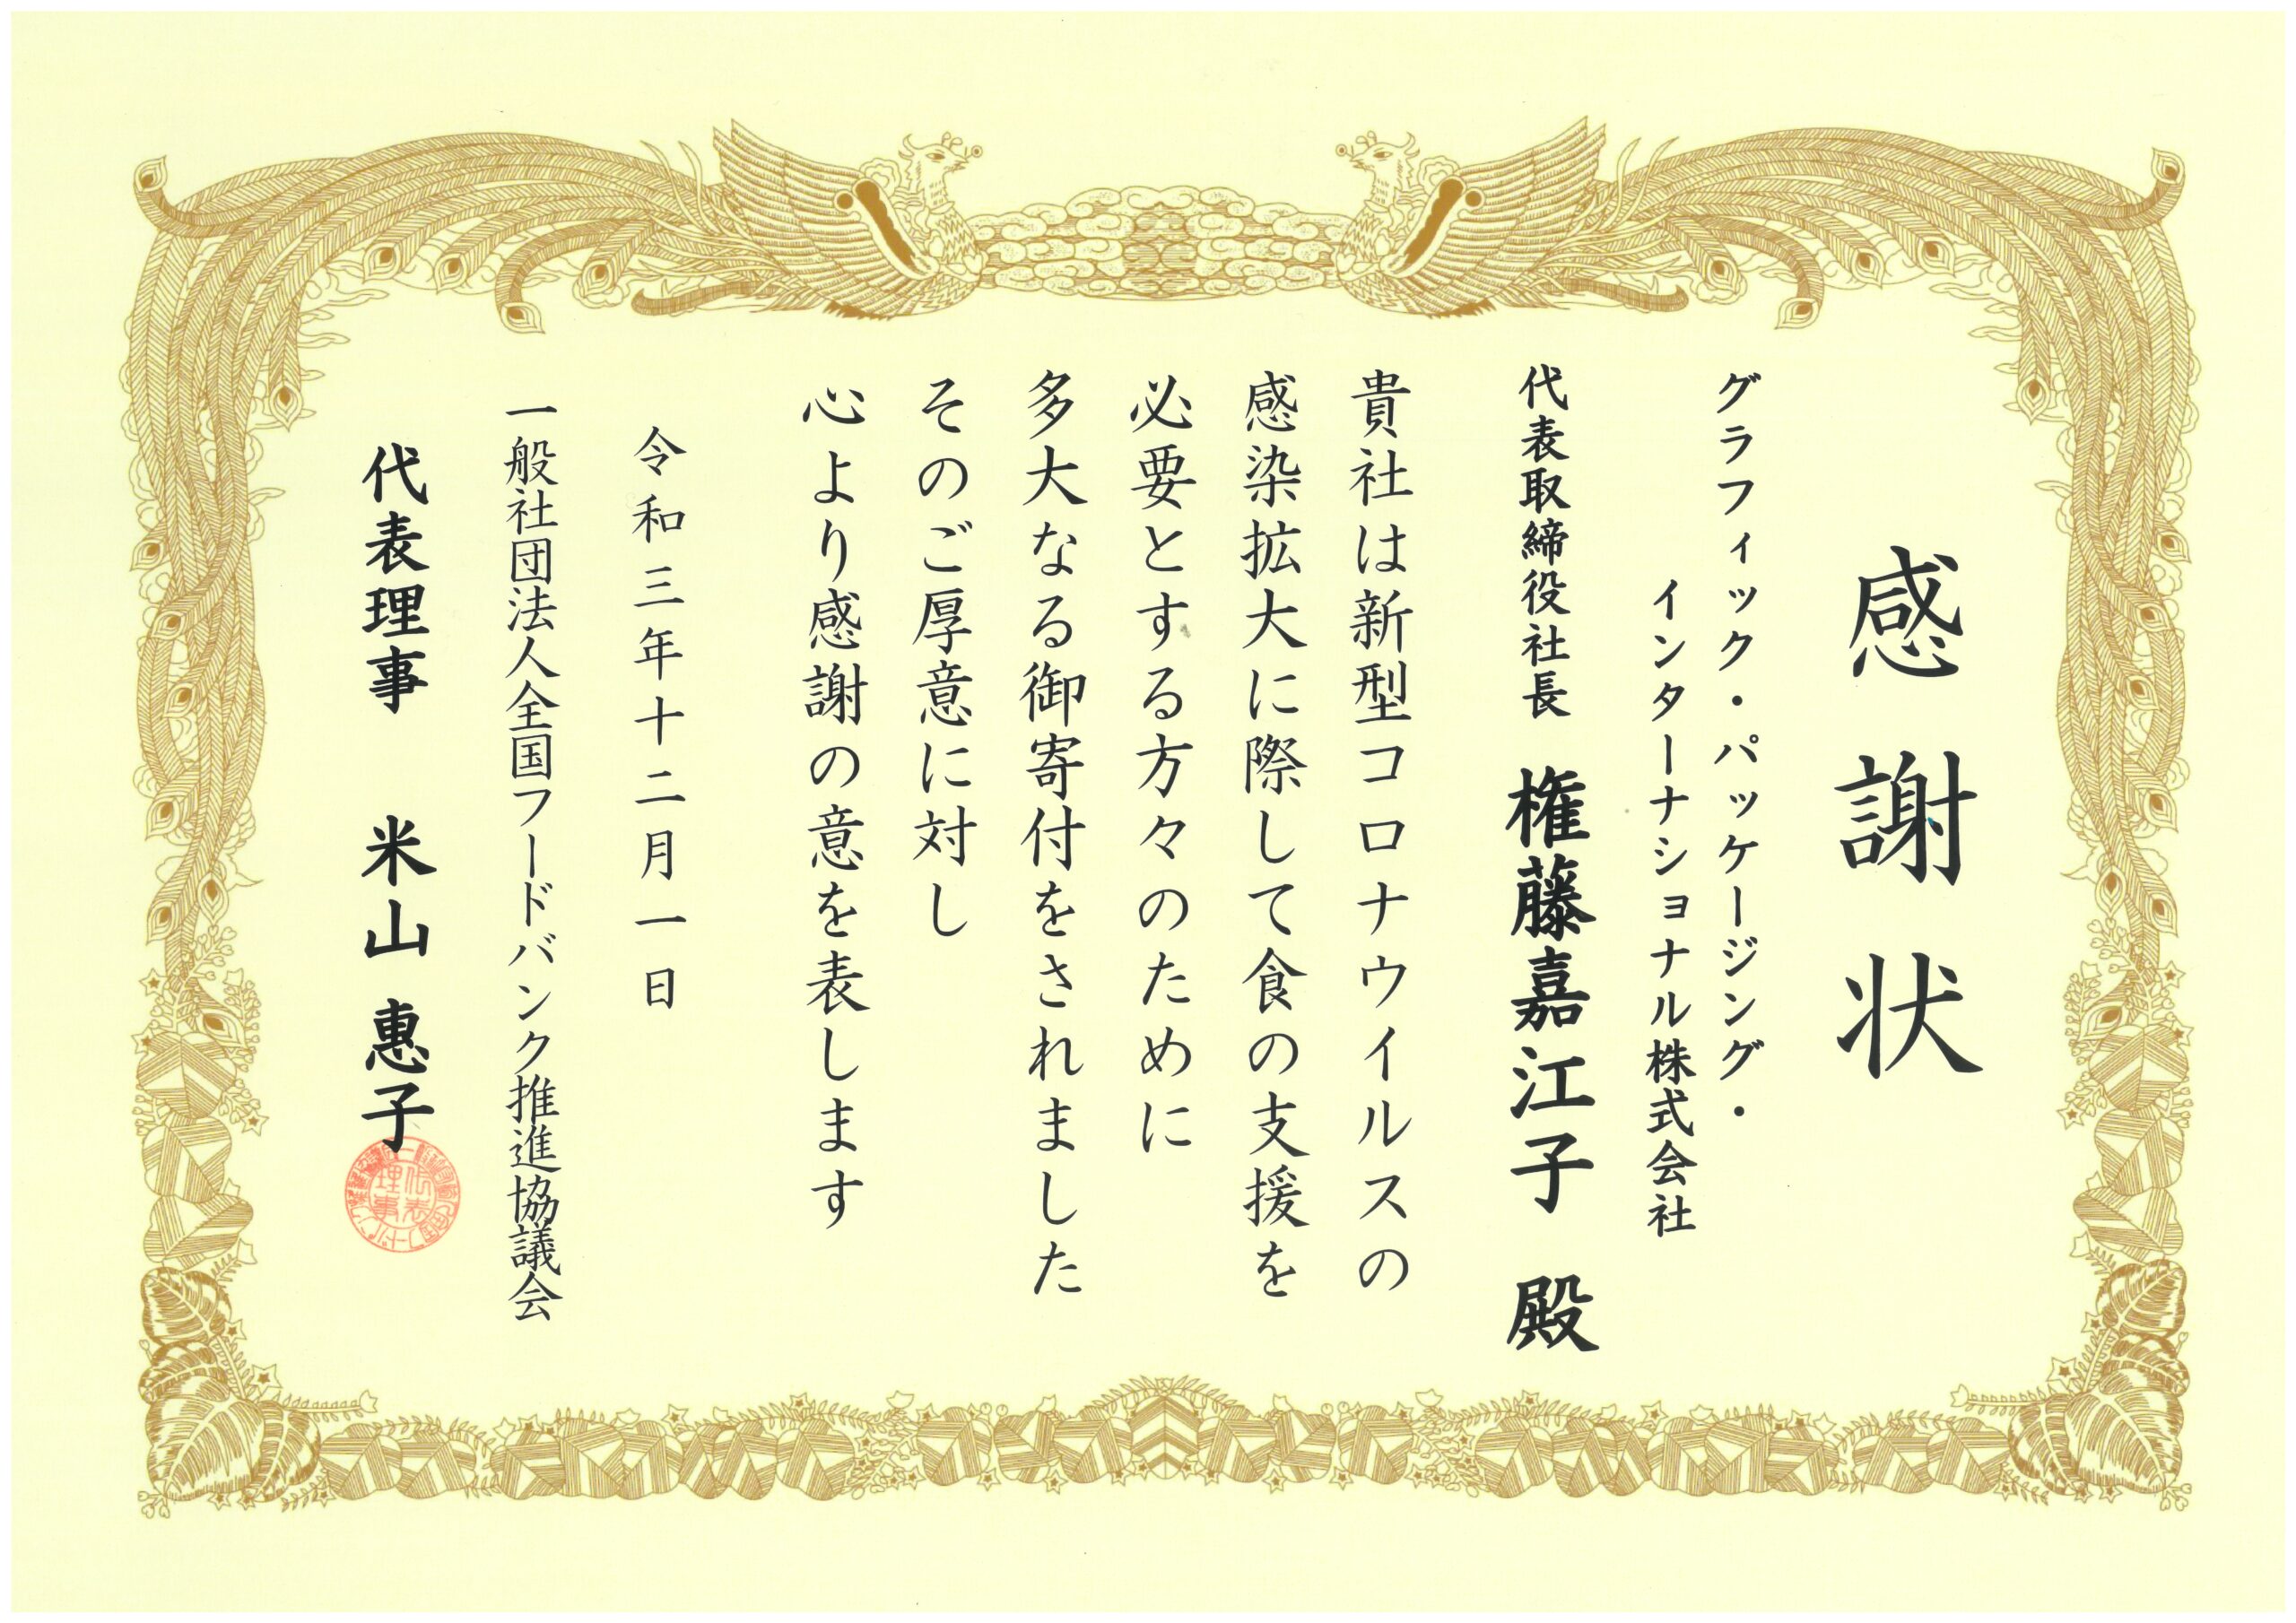 感謝状
グラフィック・パッケージング・
インターナショナル株式会社
代表取締役社長 権藤嘉江子 殿
貴社は新型コロナウイルスの
感染拡大に際して食の支援を
必要とする方々のために
多大なる御寄付をされました
そのご厚意に対し
心より感謝の意を表します
令和三年十二月一日
一般社団法人全国フードバンク推進協議会
代表理事 米山 惠子
代表
理事